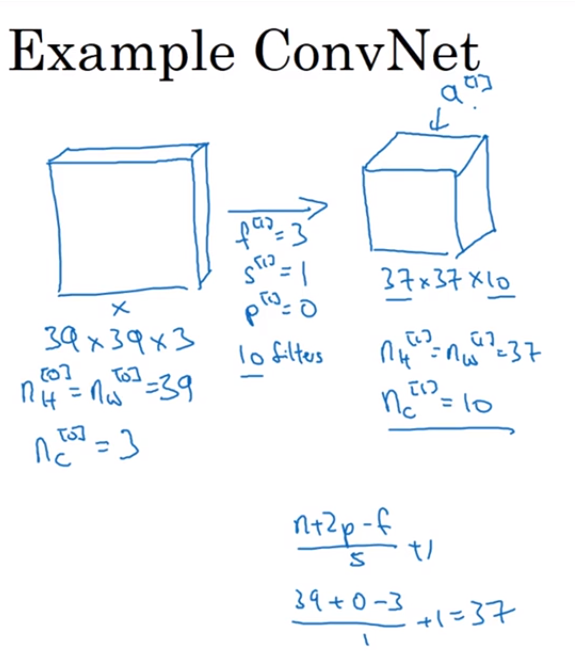 Example ConvNet
a^[1]
x
39 × 39 × 3
n_H^[0] = n_W^[0] = 39
n_C^[0] = 3
f^[1] = 3
s^[1] = 1
p^[1] = 0
10 filters
37 × 37 × 10
n_H^[1] = n_W^[1] = 37
n_C^[1] = 10
n+2p-f
s
+1
39 + 0 - 3
1
+1 = 37